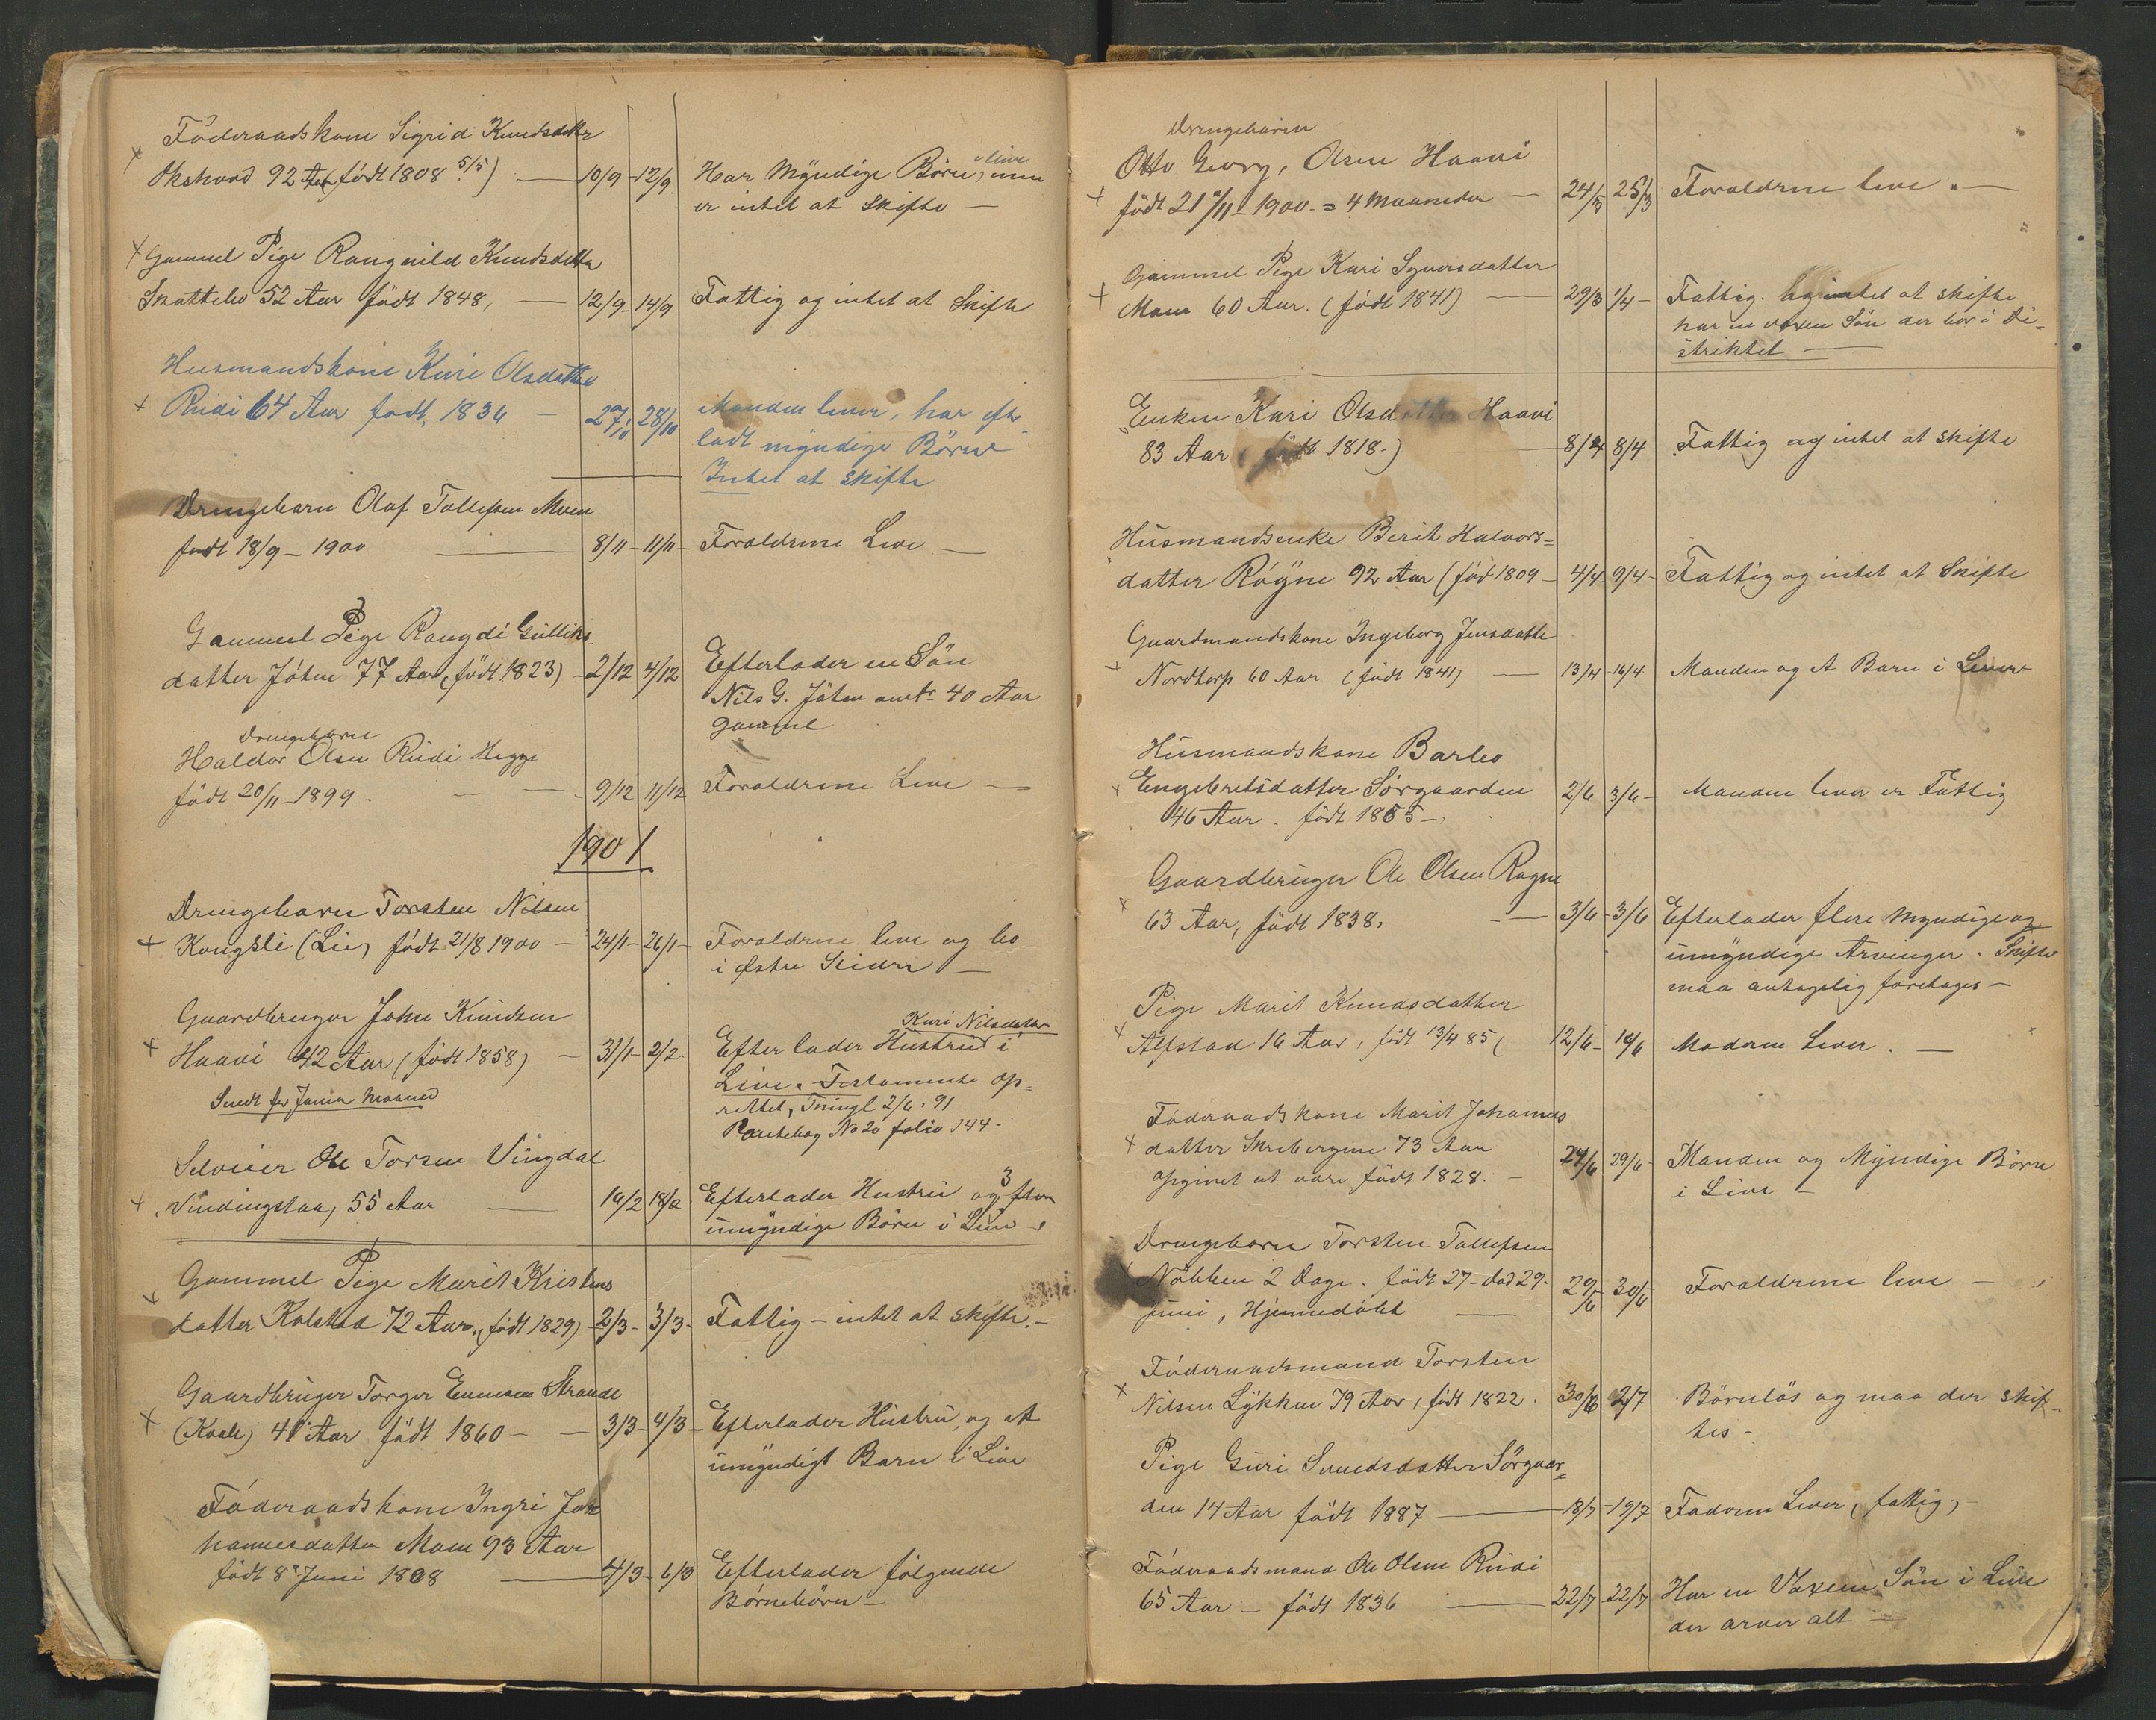 Föderaadskone Sigrid Knudsdatter
92 Aar (född 1808 5/5) — 10/9 - 12/9 Har Myndige Börn i live, men
er intet at Skifte —
Gammel Pige Rangnild Knudsdatter
Skattebo 52 Aar född 1848, — 12/9 - 14/9 Fattig og intet at Skifte
Husmandskone Kari Olsdatter
Rudi 64 Aar född, 1836 — 27/10 28/10 Manden lever, har efter-
ladt myndige Börn
Intet at skifte
Drengebarn Olaf Tollefsen Moen
född 18/9 - 1900 — 8/11 - 11/11 - Foraldrene Leve —
Gammel Pige Rangdi Gulliks
datter Jöten 77 Aar (född 1823) - 2/12 4/12 Efterlader en Sön
Nils G. Jöten omtr 40 Aar
gammel
Drengebarn
Haldor Olsen Rudi Hegge
född 20/11 - 1899 - — 9/12 11/12 Foraldrene Leve —
1901
Drengebarn Torsten Nilsen
Kongsli (Lie) född 21/8 1900 — 24/1 - 26/1 - Foraldrene leve og bo
i Østre Slidre —
Gaardbruger John Knudsen
Kari Nilsdatter
Haavi 42 Aar (född 1858) — 31/1 - 2/2 - Efterlader Hustru i
Live. Testamente op-
rettet, Tingl 2/6 - 91
Pantebog No 20 folio 144 -
Selveier Ole Torsen Vingdal
Vindingstaa, 55 Aar — 16/2 18/2 Efterlader Hustru og 3
umyndige Börn i Live -
Gammel Pige Marit Kristens
datter Kolstad 72 Aar, (född 1829) - 2/3 - 3/3 - Fattig - intet at skifte. -
Gaardbruger Torger Strande
(Kvale) 41 Aar född 1860 - — 3/3 - 4/3 - Efterlader Hustru, og et
umyndigt Barn i Live
Föderaadskone Ingri Jo
hannesdatter Moen 93 Aar
född 8de Juni 1808 — 4/3 - 6/3 Efterlader fölgende
Börnebörn -
Drengebarn
Otto Georg, Olsen Haavi
född 21/11 - 1900 - = 4 Maaneder — 24/3 25/3 Foraldrene leve. —
Gammel Pige Kari Syversdatter
Moen 60 Aar. (född 1841) — 29/3 1/4 - Fattig. og intet at skifte
har en voxen Sön der bor i Di-
striktet —
Enken Kari Olsdatter Haavi
83 Aar (född 1818.) 8/4 8/4 Fattig og intet at skifte
Husmandsenke Berit Halvors=
datter Röyne 92 Aar (född 1809 - 4/4 - 9/4 - Fattig og intet at Skifte
Gaardmandskone Ingeborg Jensdatter
Nordtorp 60 Aar (född 1841) — 13/4 - 16/4 Manden og et Barn i Live
Husmandskone Barbo
Engebretsdatter Sörgaarden 2/6 3/6 - Manden lever er Fattig
46 Aar. född 1855 -
Gaardbruger Ole Olsen Rogne
63 Aar, född 1838. — 3/6 - 3/6 Efterlader flere Myndige og
umyndige Arvinger. Skifte
maa antagelig foretages -
Pige Marit Knudsdatter
Alfstad 16 Aar, född 13/4 85 ( 12/6 - 14/6 Moderen Lever. —
Föderaadskone Marit Johannes
datter Skrebergene 73 Aar
opgivet at vare född 1828. - 24/6 29/6 - Manden og Myndige Börn
i Live -
Drengebarn Torsten Tollefsen
Nöbben 2 Dage. född 27 - död 29.
Juni, Hjemmedöbt — 29/6 30/6 Foraldrene leve -
Föderaadsmand Torsten
Nilsen Lykken 79 Aar, född 1822. 30/6 2/7 Börnlös og maa der skif-
tes -
Pige Guri Svendsdatter Sörgaar=
den 14 Aar född 1887 — 18/7 - 19/7 Faderen Lever, fattig, -
Föderaadsmand Ole Olsen Rudi
65 Aar - född 1836 — 22/7 - 22/7 Har en Voxen Sön i Live
der arver alt -